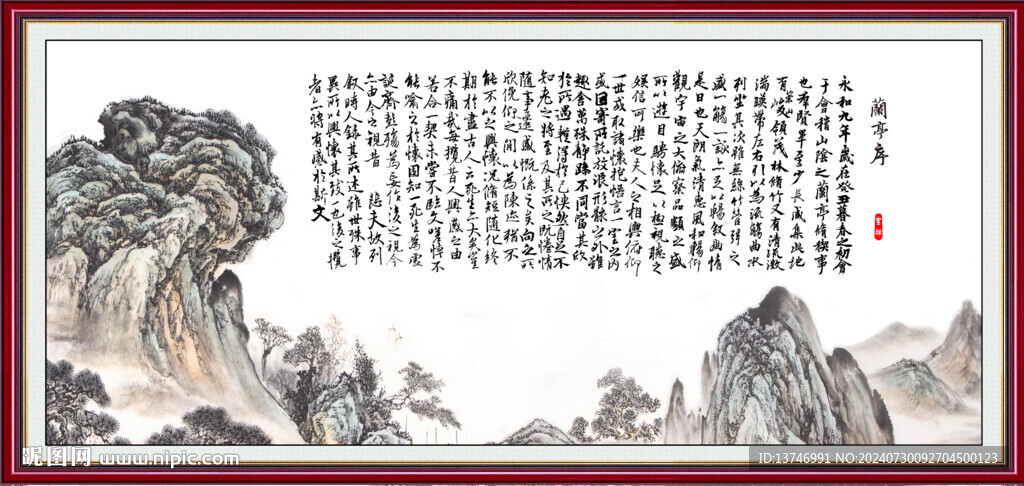 蘭亭序
永和九年歲在癸丑暮春之初會
于會稽山陰之蘭亭脩稧事
也羣賢畢至少長咸集此地
有崇山峻領茂林脩竹又有清流激
湍暎帶左右引以為流觴曲水
列坐其次雖無絲竹管弦之
盛一觴一詠亦足以暢敘幽情
是日也天朗氣清惠風和暢仰
觀宇宙之大俯察品類之盛
所以遊目騁懷足以極視聽之
娛信可樂也夫人之相與俯仰
一世或取諸懷抱悟言一室之內
或因寄所託放浪形骸之外雖
趣舍萬殊靜躁不同當其欣
於所遇蹔得於己快然自足不
知老之將至及其所之既惓情
隨事遷感慨係之矣向之所
欣俛仰之間以為陳迹猶不
能不以之興懷況脩短隨化終
期於盡古人云死生亦大矣豈
不痛哉每攬昔人興感之由
若合一契未嘗不臨文嗟悼不
能喻之於懷固知一死生為虛
誕齊彭殤為妄作後之視今
亦由今之視昔 悲夫故列
敘時人錄其所述雖世殊事
異所以興懷其致一也後之攬
者亦將有感於斯文
昵图网 www.nipic.com
ID:13746991 NO:20240730092704500123